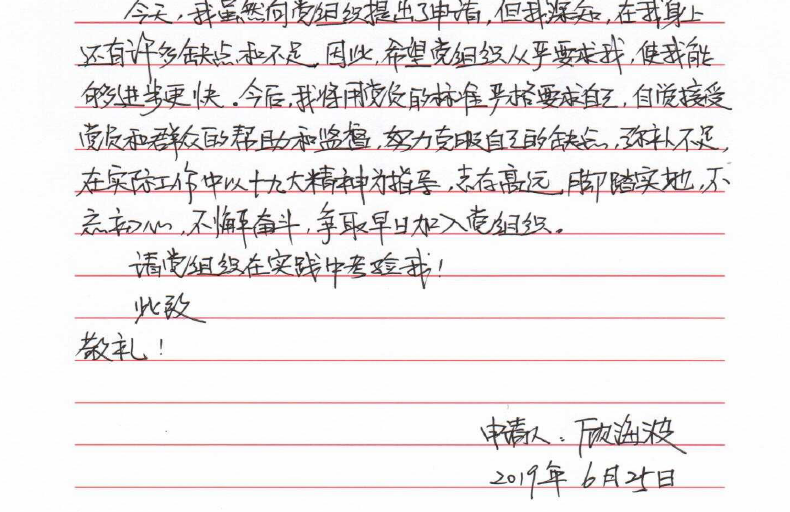 今天，我虽然向党组织提出了申请，但我深知，在我身上
还有许多缺点和不足，因此，希望党组织从严要求我，使我能
够进步更快。今后，我将用党员的标准严格要求自己，自觉接受
党员和群众的帮助和监督，努力克服自己的缺点，弥补不足，
在实际工作中以十九大精神为指导，志存高远，脚踏实地，不
忘初心，不懈奋斗，争取早日加入党组织。
请党组织在实践中考验我！
此致
敬礼！
申请人：顾海波
2019年6月25日